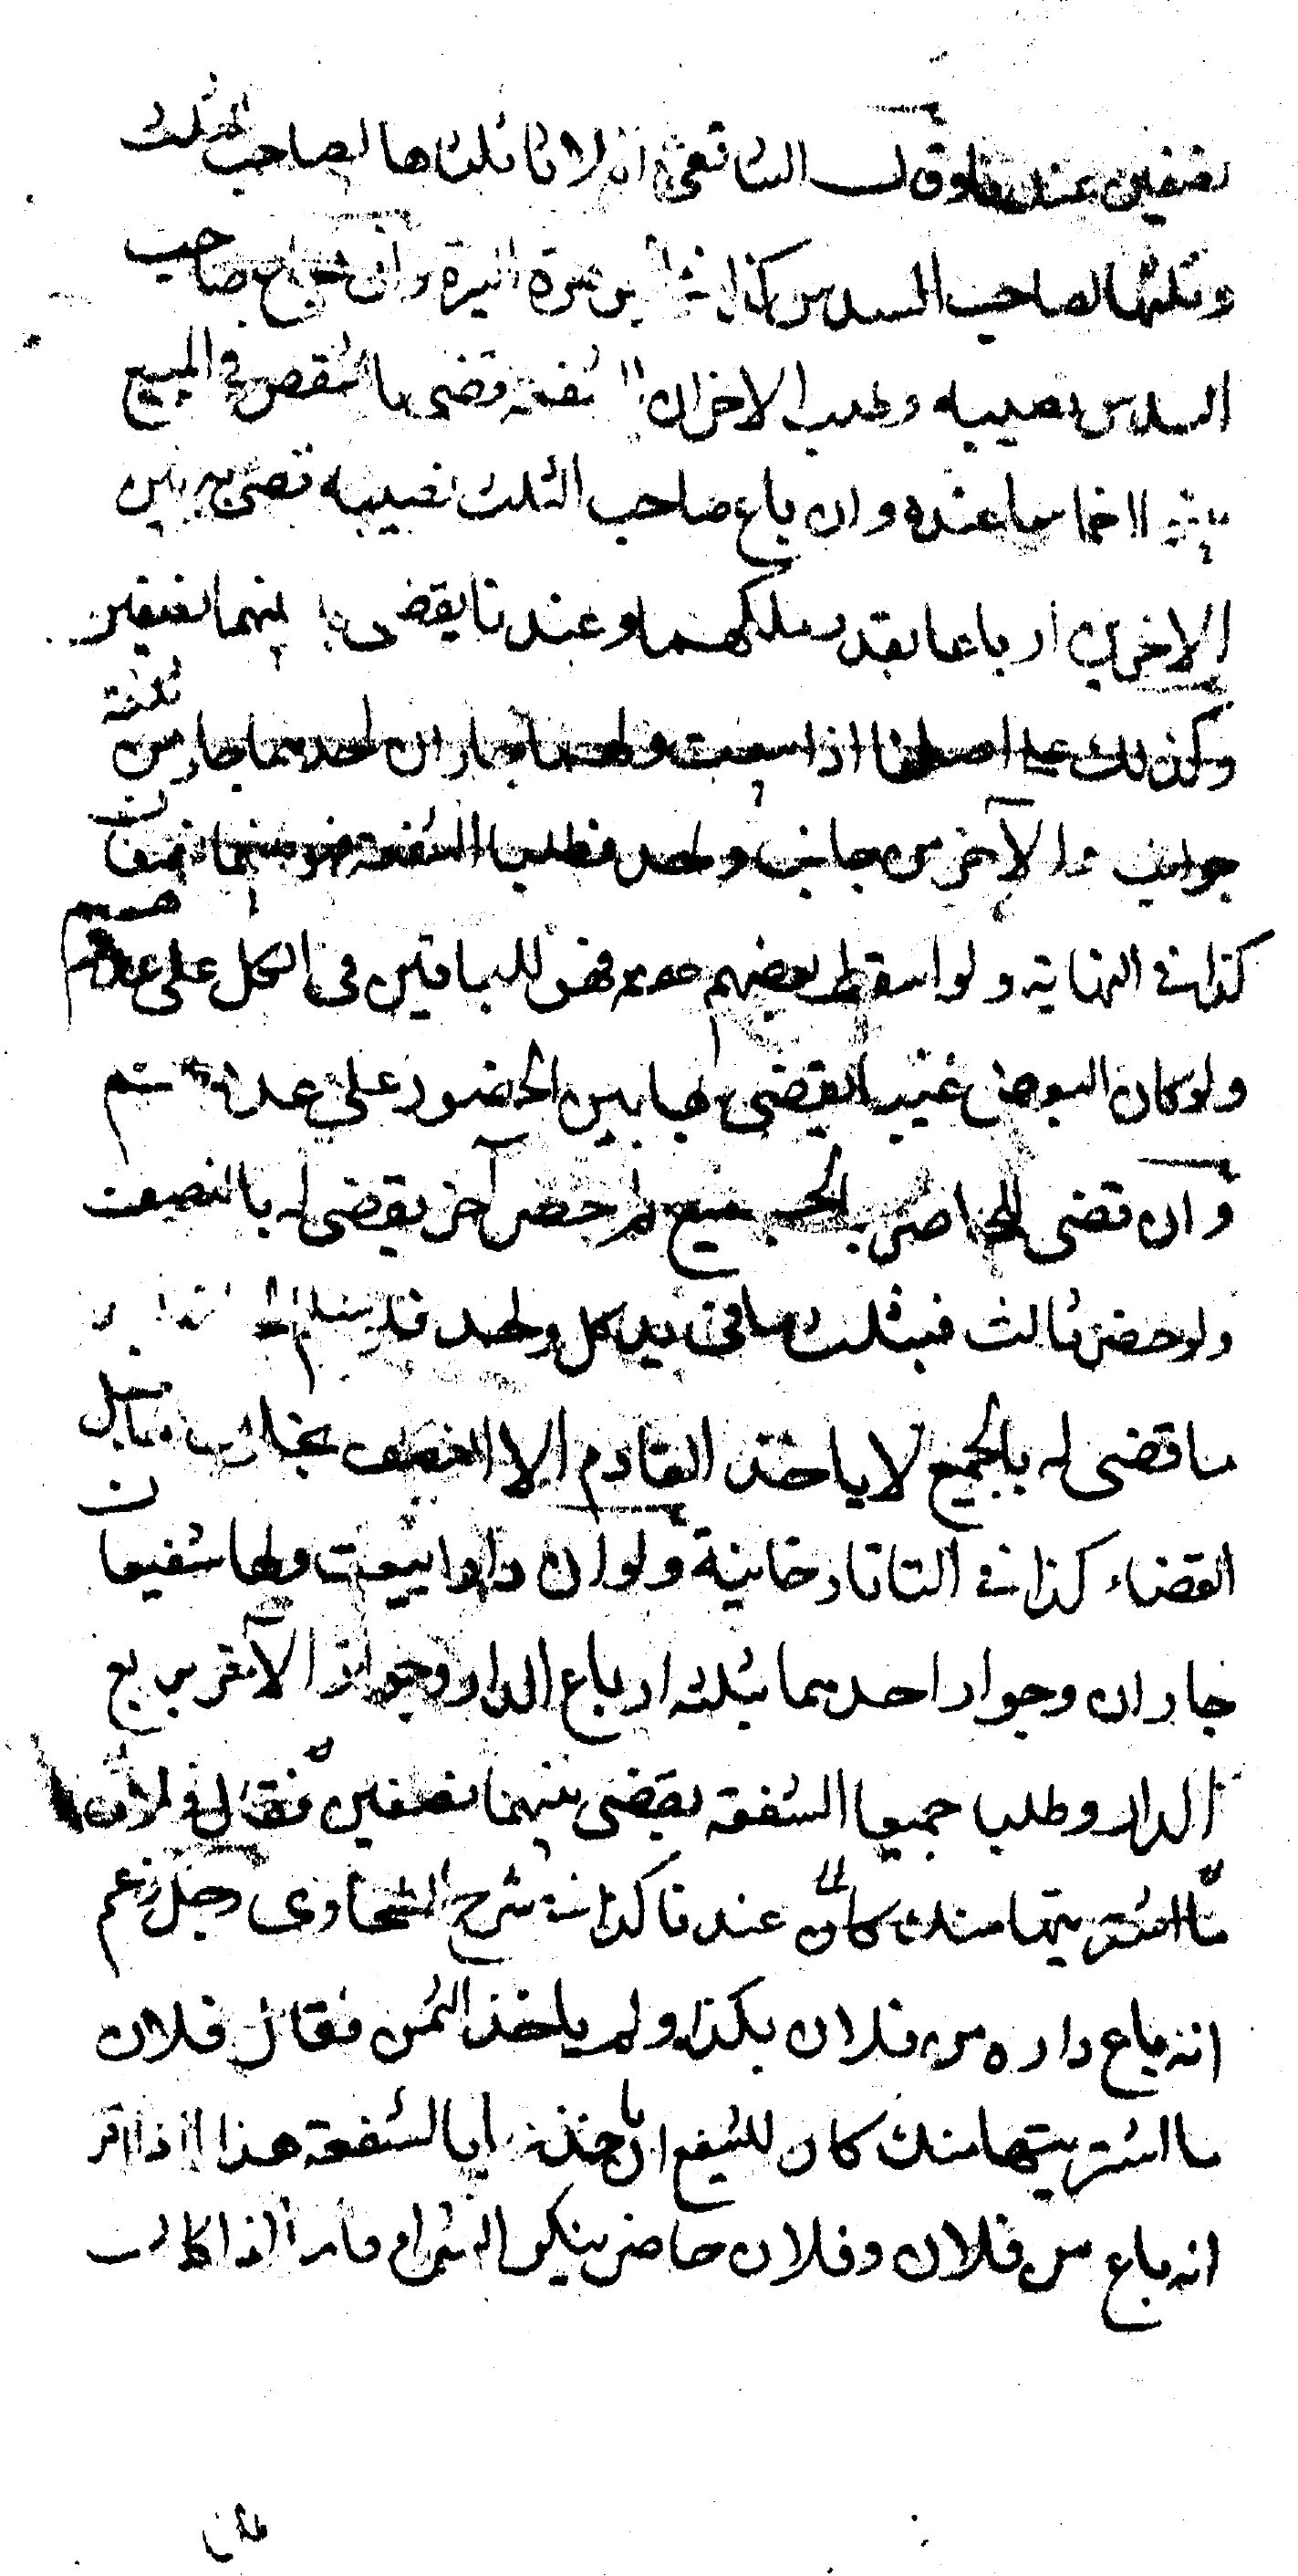 نصفين عندنا وقال الشافعي اثلاثا ثلثاها لصاحب الثلث
وثلثها لصاحب السدس كذا في الجوهرة النيرة وان باع صاحب
السدس نصيبه وطلب الاخران الشفعة قضي بالشقص في المبيع
اخماسا عنده وان باع صاحب الثلث نصيبه قضي به بين
الاخرين ارباعا بقدر ملكهما وعندنا يقضى بينهما نصفين
وكذلك على اصلنا اذا بيعت ولها جاران لاحدهما جار من ثلثة
جوانب والآخر من جانب واحد فطلبا الشفعة فهو بينهما نصفان
كذا في النهاية ولو اسقط بعضهم حقه فهي للباقين في الكل على عددهم
ولو كان البعض غيبا يقضى بها بين الحضور على عددهم
وان قضى للحاضر بالجميع ثم حضر آخر يقضى له بالنصف
ولو حضر ثالث فبثلث ما في يد كل واحد
ما قضى له بالجميع لا ياخذ القادم الا النصف بخلاف ما قبل
القضاء كذا في التاتارخانية ولو ان دارا بيعت ولها شفيعان
جاران وجوار احدهما بثلثة ارباع الدار وجوار الآخر بربع
الدار وطلبا جميعا الشفعة يقضى بينهما نصفين فقال فلان
ما اشتريتها منك كان عندنا كذا في شرح الطحاوى رجل زعم
انه باع داره من فلان بكذا ولم ياخذ الثمن فقال فلان
ما اشتريتها منك كان للشفيع ان ياخذها بالشفعة هذا اذا اقر
انه باع من فلان وفلان حاضر ينكر الشراء فاما اذا كان